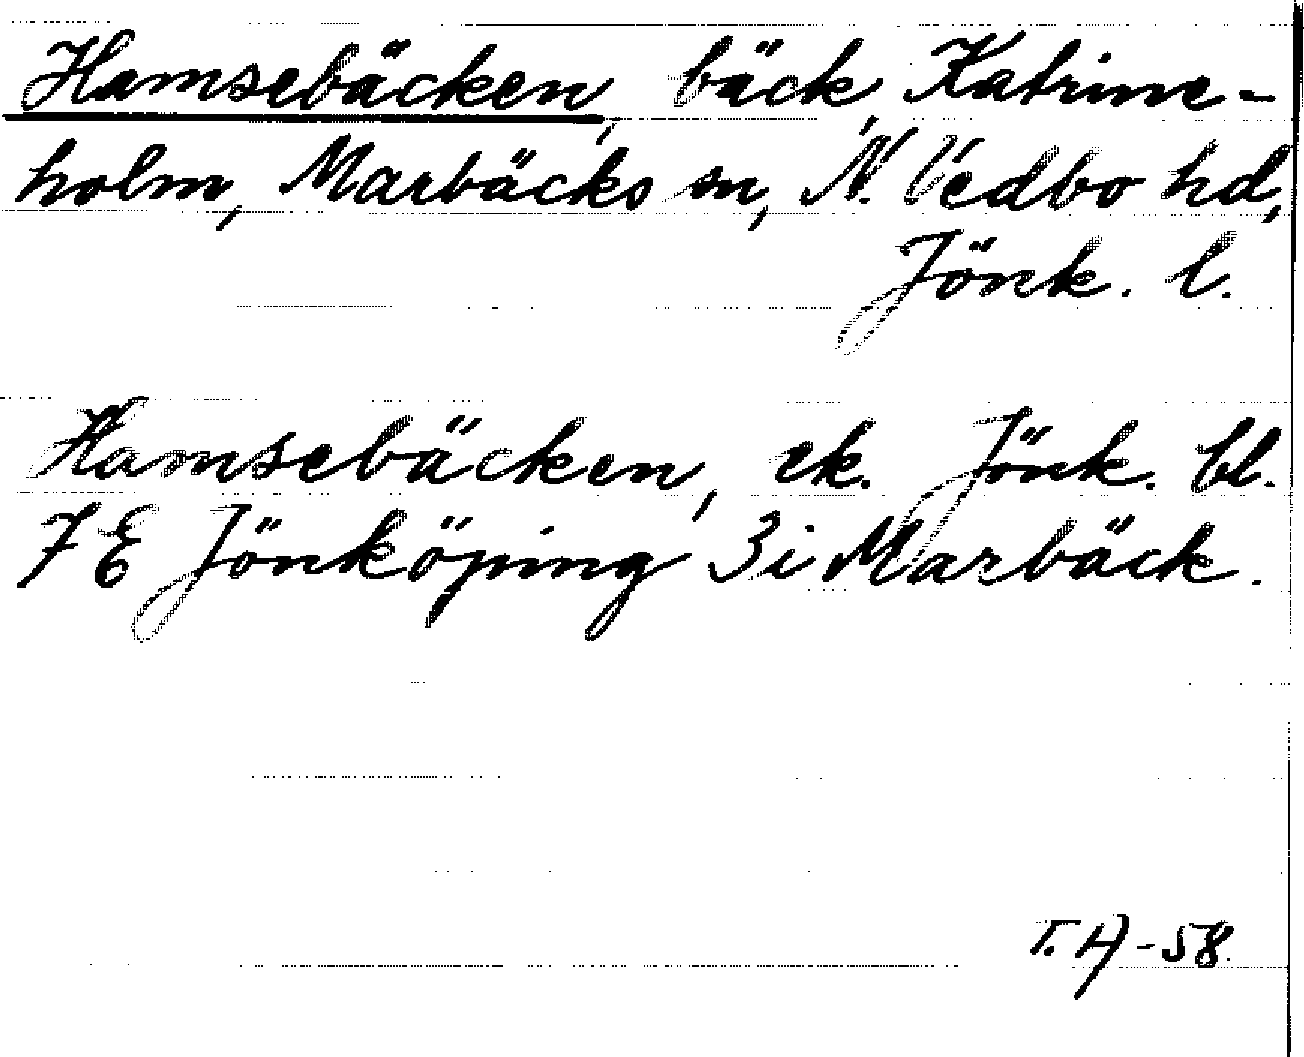 Hamsebäcken, bäck, Katrine-
holm, Marbäcks sn, N. Vedbo hd,
Jönk. l.
Hamsebäcken, ek. Jönk. bl.
7 E Jönköping 3i Marbäck.
T.H-58.